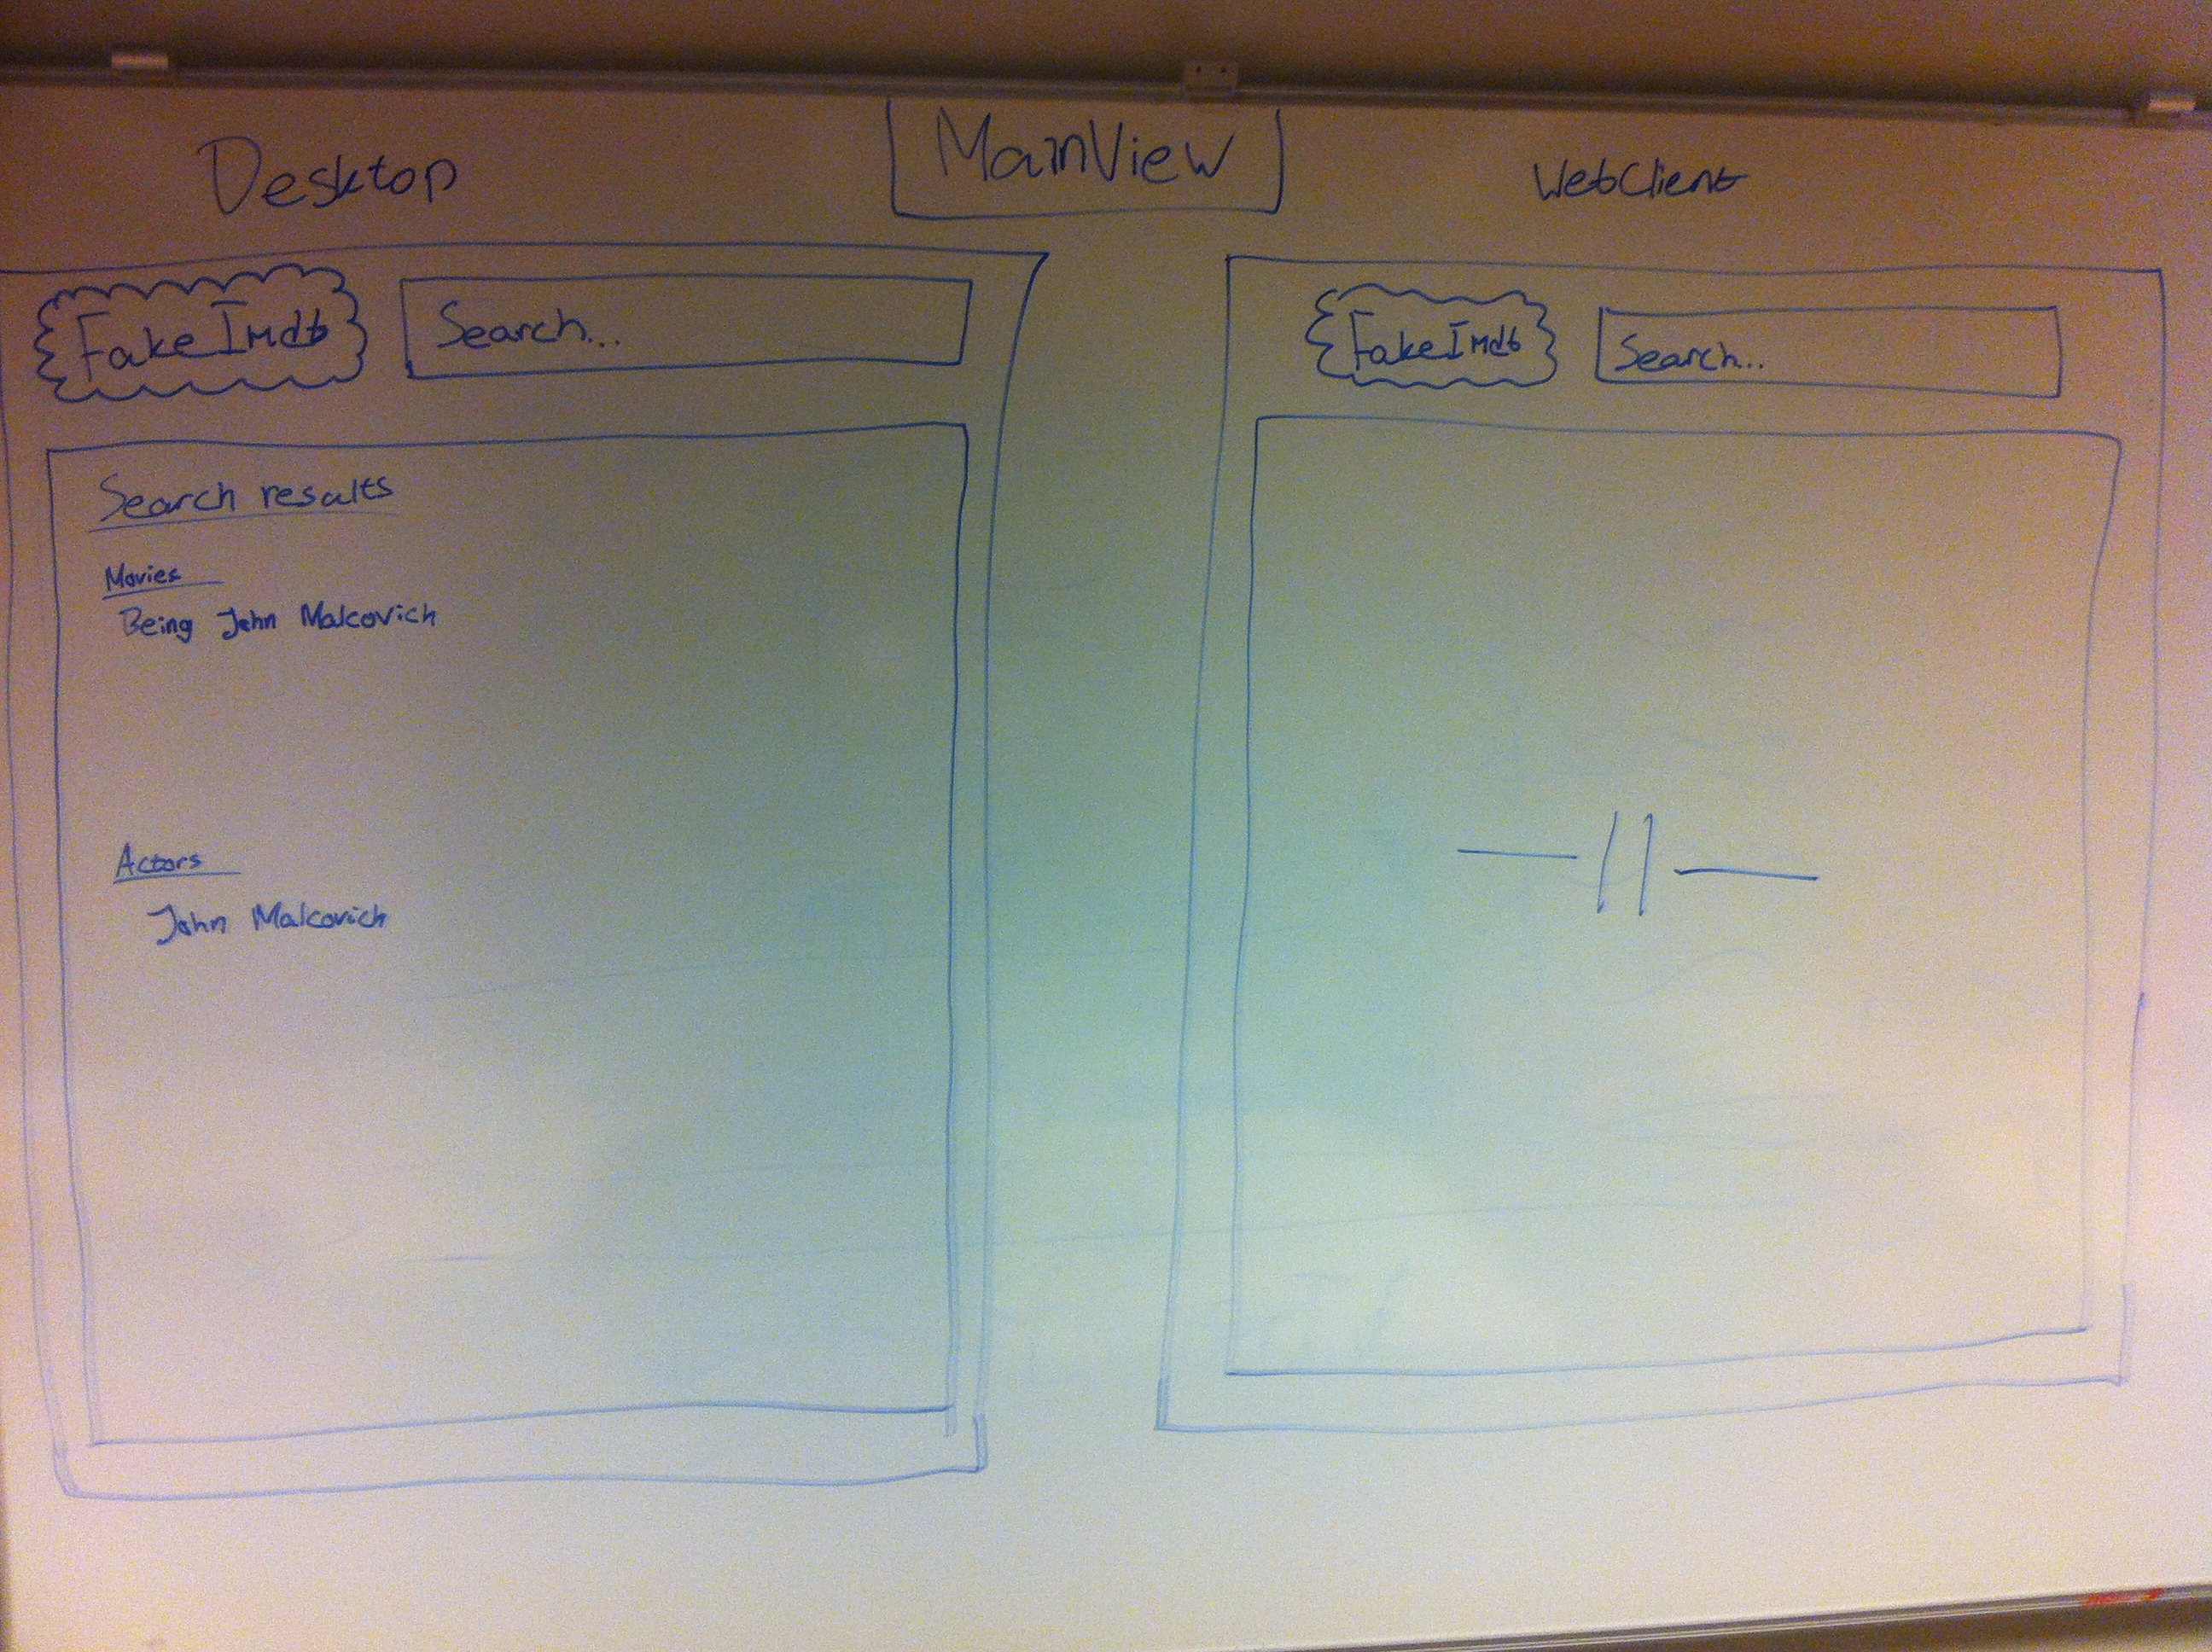 MainView
Desktop
FakeImdb
Search...
Search results
Movies
Being John Malcovich
Actors
John Malcovich
WebClient
FakeImdb
Search...
—//—